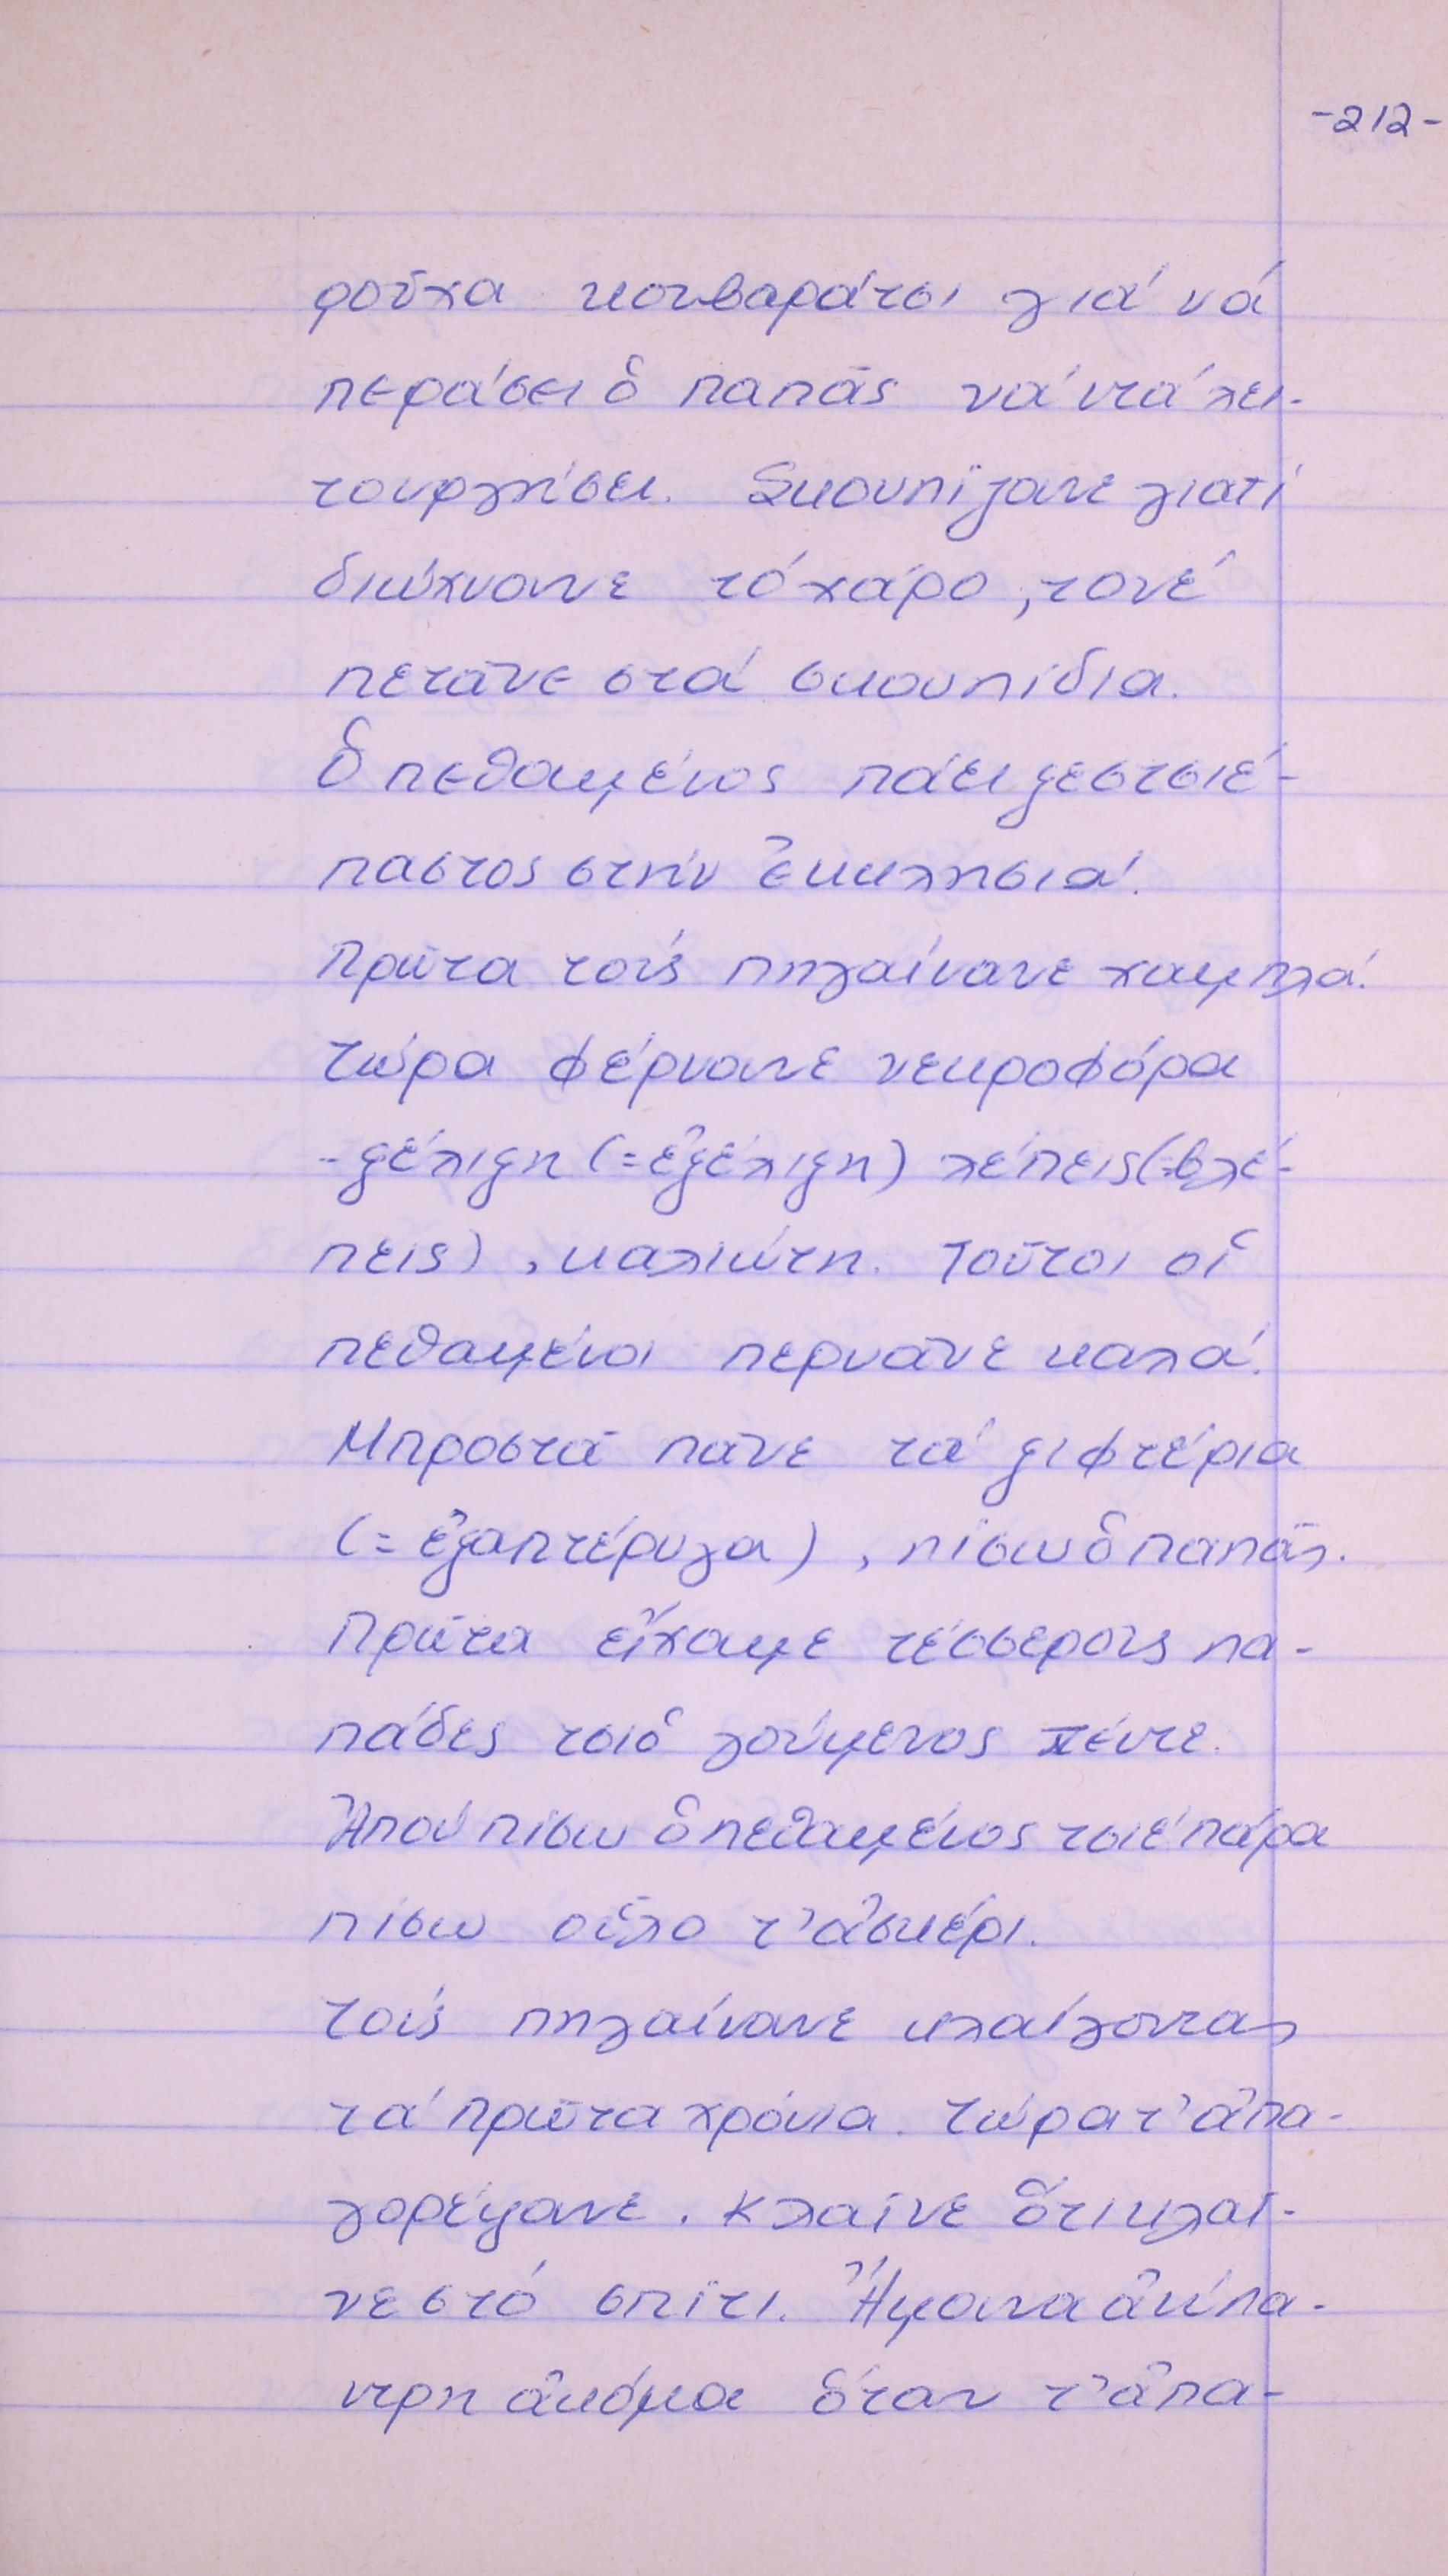 -212-
ροῦχα κουβαράτσι γιά νά
περάσει ὁ παπᾶς νά ντά λει-
τουργήσει. Σκουπίζανε γιατί
διώχνανε τό χάρο, τονέ
πετᾶνε στά σκουπίδια.
Ὁ πεθαμένος πάει ξεστσιέ-
παστος στήν ἐκκλησιά.
Πρῶτα τούς πηγαίνανε χαμηλά.
Τώρα φέρνανε νεκροφόρα
-ξέλιξη (=ἐξέλιξη) λέπεις (=βλέ-
πεις), καλιώτη. Τοῦτοι οἱ
πεθαμένοι περνᾶνε καλά.
Μπροστά πᾶνε τά ξιφτέρια
(=ἐξαπτέρυγα), πίσω ὁ παπᾶς.
Πρῶτα εἴχαμε τέσσερους πα-
πάδες τσι ὁ γούμενος πέντε.
Ἀπού πίσω ὁ πεθαμένος τσιέ πάρα
πίσω οὗλο τ' ἀσκέρι.
Τούς πηγαίνανε κλαίγοντας
τά πρῶτα χρόνια. Τώρα τ' ἀπα-
γορέψανε. Κλαῖνε ὅτι κλαῖ-
νε στό σπίτι. Ἤμανα ἀνύπα-
ντρη ἀκόμα ὅταν τ' ἀπα-